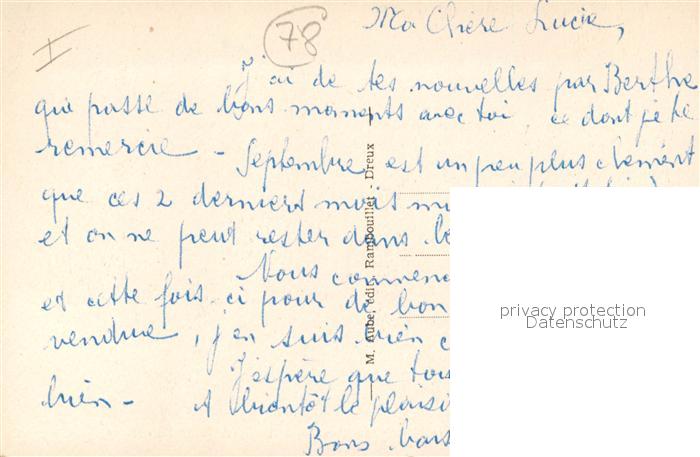 I
78
Ma Chère Lucie,
J'ai de tes nouvelles par Berthe
qui passe de bons moments avec toi, ce dont je te
remercie - Septembre est un peu plus clément
que ces 2 derniers mois
et on ne peut rester dans
Nous commenc
et cette fois-ci pour de bon
vendue, j'en suis bien c
J'espère que tois
bien - A bientôt le plaisi
Bons bais
M. Aubé, édit., Rambouillet - Dreux
privacy protection
Datenschutz